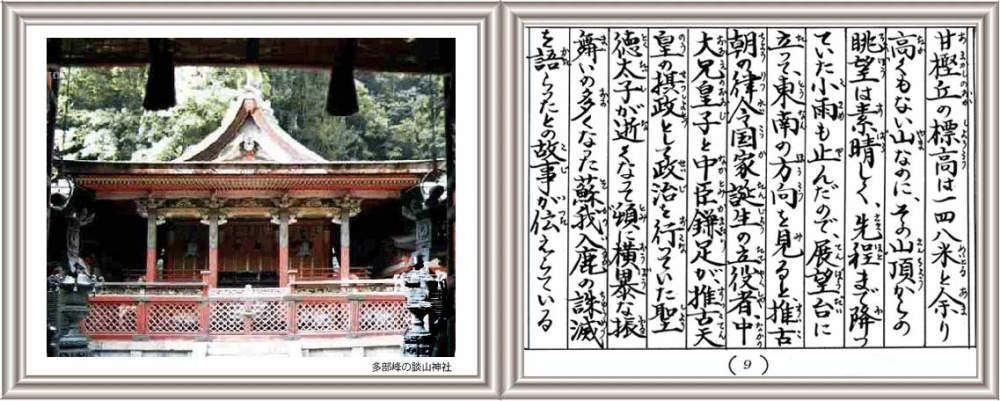 多部峰の談山神社
甘樫丘の標高は一四八米と余り
高くもない山なのに、その山頂からの
眺望は素晴しく、先程まで降っ
ていた小雨も止んだので、展望台に
立って東南の方向を見ると、推古
朝の律令国家誕生の立役者、中
大兄皇子と中臣鎌足が、推古天
皇の摂政として政治を行っていた聖
徳太子が逝くなって頓に横暴な振
舞いの多くなった蘇我入鹿の誅滅
を語らったとの故事が伝えられている
(9)